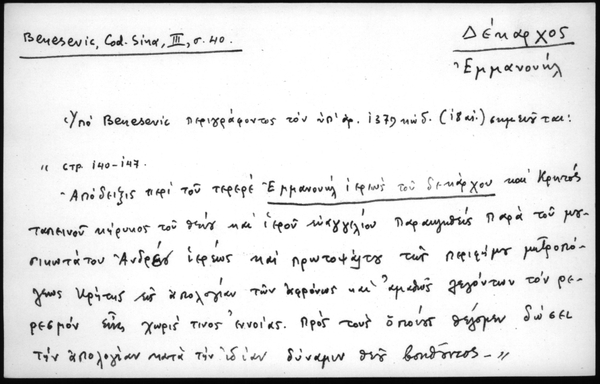 Benesevic, Cod. Sina, III, σ. 40.
Δέκαρχος
Ἐμμανουήλ
Ὑπό Benesevic περιγράφοντος τόν ὑπ' ἀρ. 1379 κώδ. (18 αἰ.) σημειοῦται:
" στρ. 140-147.
Ἀπόδειξις περί τοῦ τερερέ Ἐμμανουήλ ἱερέως τοῦ δεκάρχου καί Κρητός
ταπεινοῦ κήρυκος τοῦ θείου καί ἱεροῦ εὐαγγελίου παρακινηθείς παρά τοῦ μου
σικωτάτου Ἀνδρέου ἱερέως καί πρωτοψάλτου τῆς περιφήμου μητροπό
λεως Κρήτης εἰς ἀπολογίαν τῶν ἀφρόνως καί ἀμαθῶς λεγόντων τόν ρε
ρεσμόν εἶναι χωρίς τινος ἐννοίας. Πρός τούς ὁποίους θέλομεν δώσει
τήν ἀπολογίαν κατά τήν ἰδίαν δύναμιν θεοῦ βοηθοῦντος - "